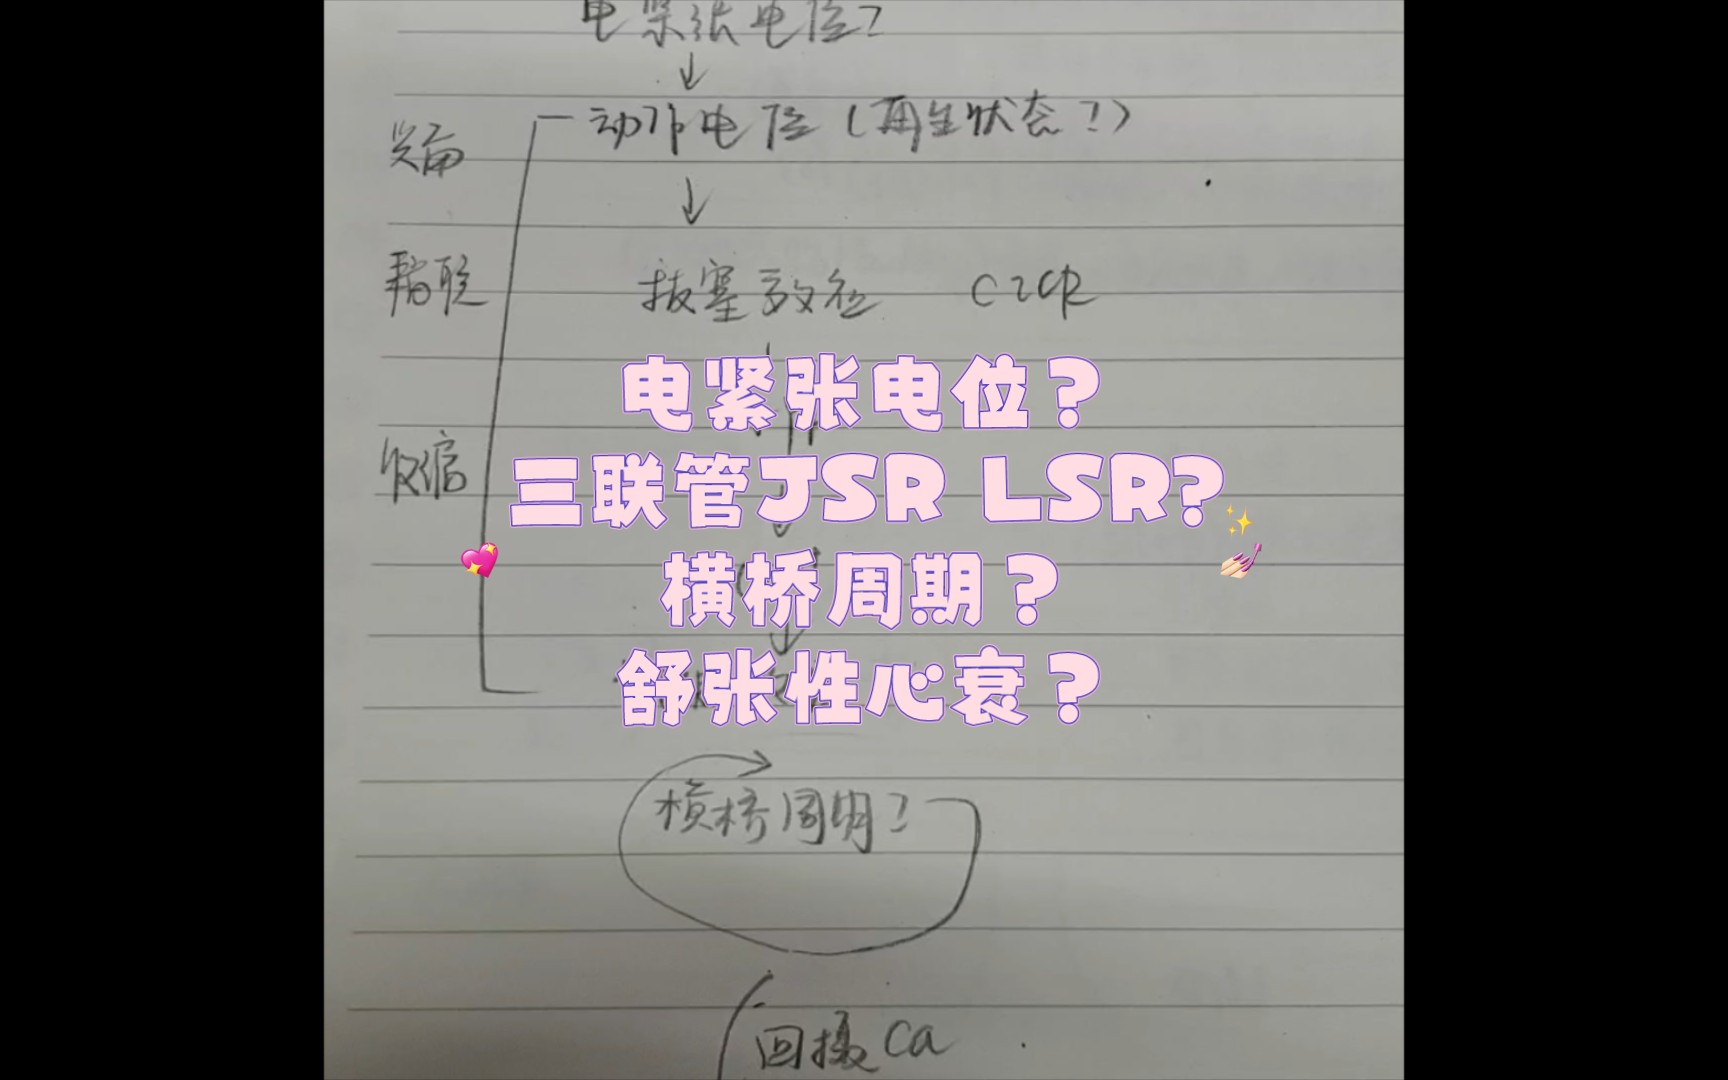 电紧张电位?
↓
兴奋
动作电位(再生状态?)
↓
耦联
拔塞效应 CICR
电紧张电位?
收缩
三联管JSR LSR?
横桥周期?
舒张性心衰?
横桥周期?
回摄Ca